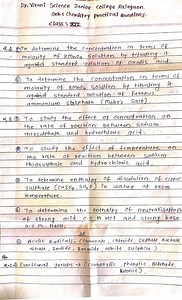 Dr. Vanni Science Junior college Ralegaon.
Sub:- Chemistry practical Questions.
class :- XII
To determine the concentration in terms of
molarity of KMnO4 solution by titrating it
against standard solution of oxalic acid.
To determine the concentration in terms of
molarity of KMnO4 Solution by titrating it
standard solution of ferrous
ammonium sulphate (Mohr's Salt)
To study the effect of concentration on
the rate of reaction between sodium
thiosulphate and hydrochloric acid.
To study the effect of temperature on
the rate of reaction between sodium
thiosulphate and Hydrochloric acid.
To determine enthalpy of dissolution of copper
sulphate (CuSO4, 5H2O) in water at room
temperature.
To determine the enthalpy of neutralisation
of strong acid and strong base
Acidic Radicals (Carbonate, Chloride, Acetate
Nitrate, Iodide, Bromide, Sulphite)
Functional groups → (Carboxylic, phenolic, Aldehyde,
Ketonic)